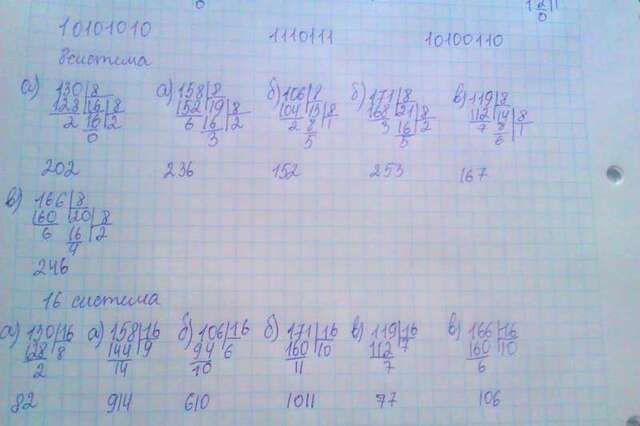 10101010 1110111 10100110
8 система
а) 130 | 8 а) 158 | 8 б) 106 | 8 б) 171 | 8 в) 119 | 8
128 | 16 | 8 152 | 19 | 8 104 | 13 | 8 168 | 21 | 8 112 | 14 | 8
2 16 | 2 6 16 | 2 2 8 | 1 3 16 | 2 7 8 | 1
0 3 5 5 6
202 236 152 253 167
в) 166 | 8
160 | 20 | 8
6 16 | 2
4
246
16 система
а) 130 | 16 а) 158 | 16 б) 106 | 16 б) 171 | 16 в) 119 | 16 в) 166 | 16
128 | 8 144 | 9 94 | 6 160 | 10 112 | 7 160 | 10
2 14 10 11 7 6
82 914 610 1011 77 106